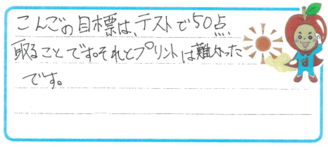 こんごの目標は、テストで50点
取ることです。それとプリントは難しかった
です。